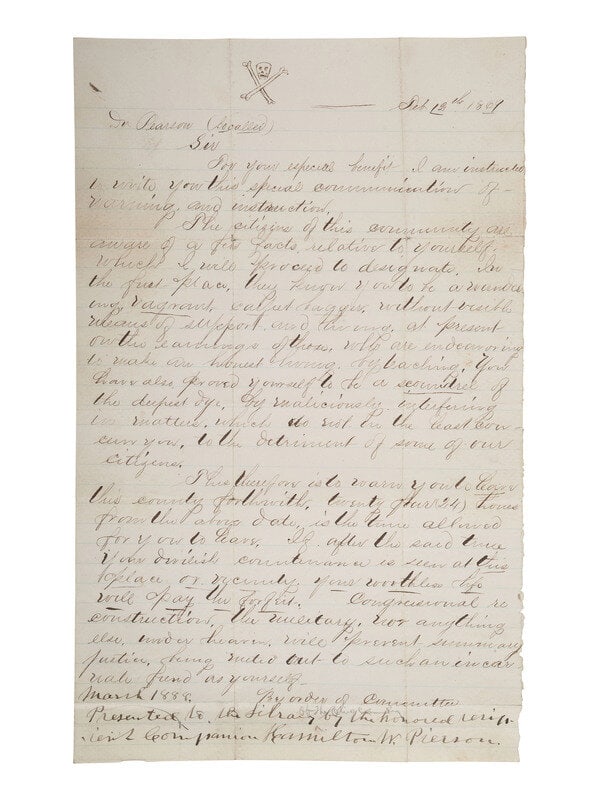 Feb 12th
Dr Pearson (so called)
Sir
For your especial benefit I am instructed
to write you this special communication of
warning and instruction.
The citizens of this community are
aware of a few facts, relative to yourself,
which I will proceed to designate. In
the first place, they know you to be a wander-
ing, vagrant, carpet bagger, without visible
means of support and living, at present
on the earnings of those, who are endeavoring
to make an honest living by teaching. You
have also proved yourself to be a scoundrel of
the deepest dye, by maliciously interfering
in matters, which do not in the least con-
cern you, to the detriment of some of our
citizens.
This therefore is to warn you to leave
this county forthwith. twenty four (24) hours
from the above date, is the time allowed
for you to leave. If after the said time
your devilish countenance is seen at this
place or vicinity your worthless life
will pay the forfeit. Congressional re
construction, the military, nor anything
else, under heaven, will prevent summary
justice, being meted out to such an incar
nate fiend as yourself.
March 1888. By order of Committee
Presented to the Library by the honored recip-
ient Companion Hamilton W. Pierson.